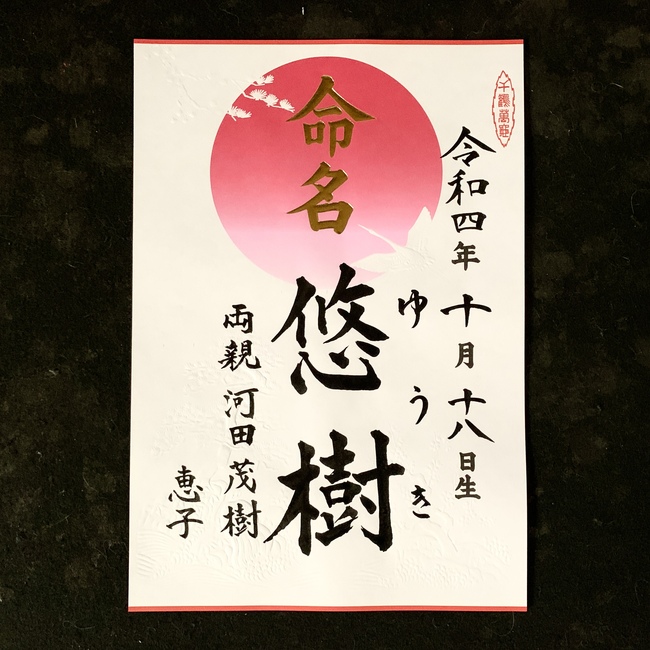 令和四年 十月 十八日生
命名
悠樹
ゆうき
両親 河田茂樹
恵子